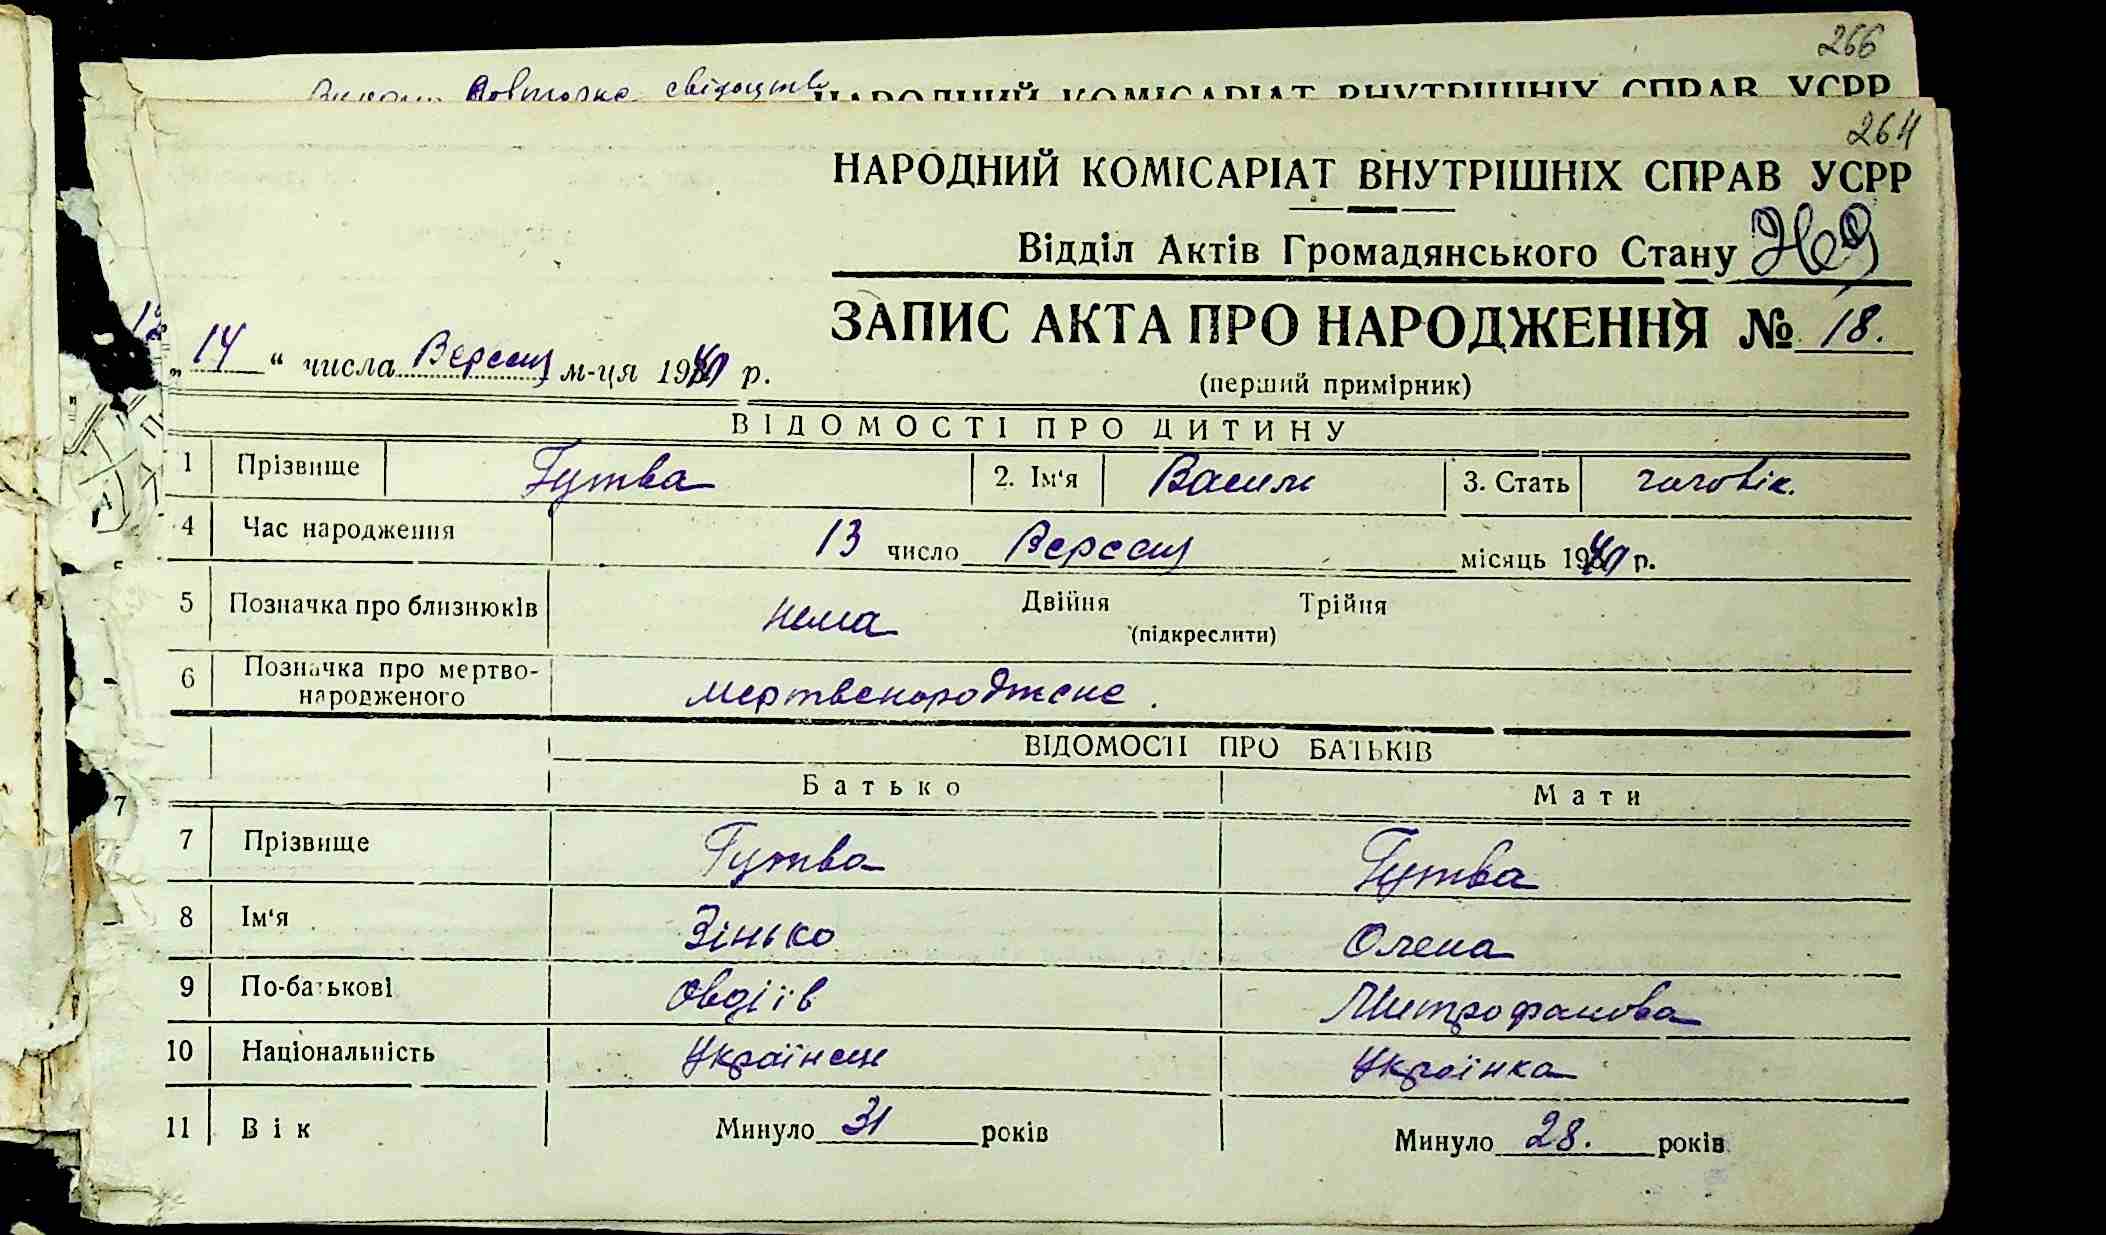 266
свідоцтво
НАРОДНИЙ КОМІСАРІАТ ВНУТРІШНІХ СПРАВ УСРР
264
НАРОДНИЙ КОМІСАРІАТ ВНУТРІШНІХ СПРАВ УСРР
Відділ Актів Громадянського Стану
ЗАПИС АКТА ПРО НАРОДЖЕННЯ № 18.
„14“ числа Вересня м-ця 1940 р.
(перший примірник)
ВІДОМОСТІ ПРО ДИТИНУ
1 Прізвище Гутва 2. Ім'я Василь 3. Стать чоловік.
4 Час народження 13 число Вересня місяць 1940 р.
5 Позначка про близнюків нема Двійня Трійня
(підкреслити)
6 Позначка про мертво-
народженого мертвенароджене.
ВІДОМОСТІ ПРО БАТЬКІВ
Батько Мати
7
7 Прізвище Гутва Гутва
8 Ім'я Зінько Олена
9 По-батькові Овдіїв Митрофанова
10 Національність Українец Українка
11 Вік Минуло 31 років Минуло 28. років